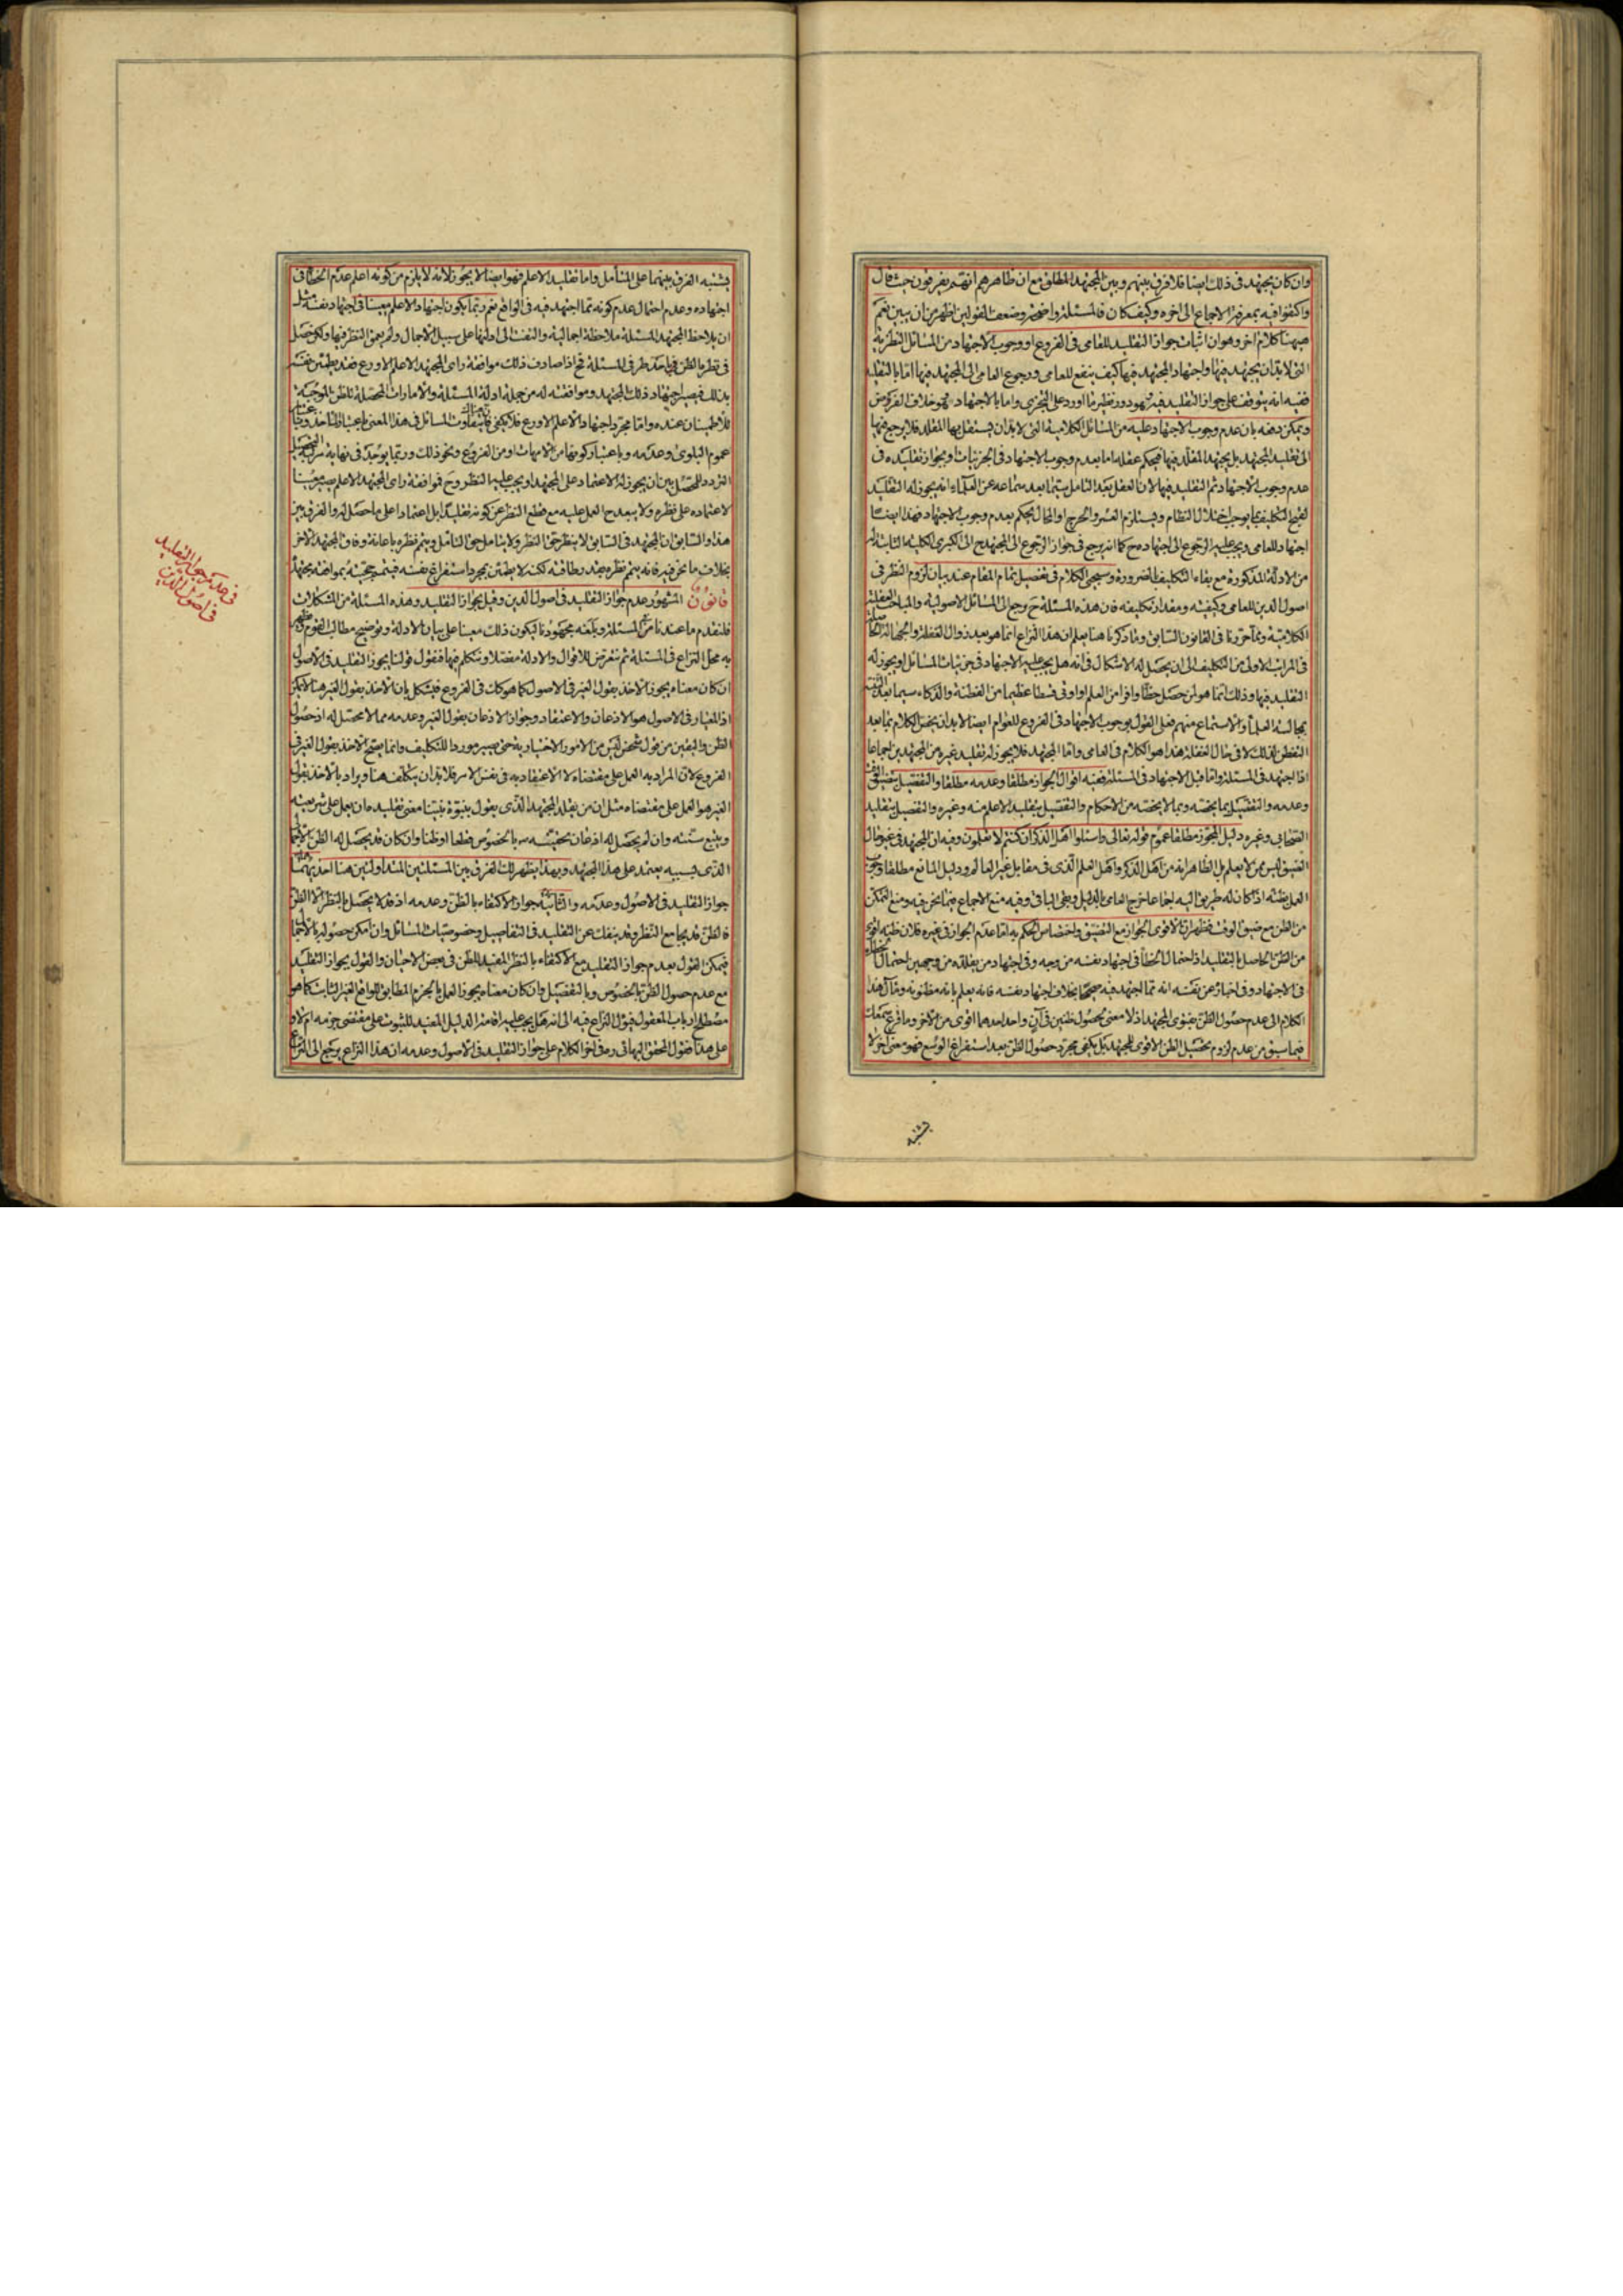 وان كان يجتهد فى ذلك ايضا فلا فرق بينهم وبين المجتهد المطلق مع ان ظاهرهم انهم يفرقون حيث قال
واكتفوا فيه بمعرفة الاجماع الى اخره وكيف كان فالمسئلة واضحة وضعف القولين اظهر من ان يبين نعم
هيهنا كلام اخر وهو ان اثبات جواز التقليد للعامى فى الفروع او وجوب الاجتهاد من المسائل النظرية
التى لا بد ان يجتهد فيها واجتهاد المجتهد فيها كيف ينفع للعامى ورجوع العامى الى المجتهد فيها اما بالتقليد
ففيه انه يتوقف على جواز التقليد فيه فهو دور نظير ما اورد على التجزى واما بالاجتهاد فهو خلاف الفرض
ويمكن دفعه بان عدم وجوب الاجتهاد عليه من المسائل الكلامية التى لا بد ان يستقل بها المقلد فلا يرجع فيها
الى تقليد المجتهد بل يجتهد المقلد فيها فيحكم عقله اما بعدم وجوب الاجتهاد فى الجزئيات وبجواز تقليده فى
عدم وجوب الاجتهاد ثم التقليد فيها لان العقل بعد التامل سيما بعد سماعه عن العلماء انه يجوز له التقليد
لقبح التكليف بما يوجب اختلال النظام ويستلزم العسر والحرج او المحال يحكم بعدم وجوب الاجتهاد فهذا ايضا
اجتهاد للعامى ويجب عليه الرجوع الى اجتهاده ح كما انه يرجع فى جواز الرجوع الى المجتهد ح الى الكبرى الكلية الثابتة له
من الادلة المذكورة مع بقاء التكليف بالضرورة وسيجئ الكلام فى تفصيل تمام المقام عند بيان لزوم النظر فى
اصول الدين للعامى وكيفيته ومقدار تكليفه فان هذه المسئلة ح ترجع الى المسائل الاصولية والمباحث العقلية
الكلامية ومما حررنا فى القانون السابق وما ذكرنا هنا يعلم ان هذا النزاع انما هو بعد زوال الغفلة والجهالة
فى المراتب الاولى من التكليف الى ان يحصل له الاشكال فى انه هل يجب عليه الاجتهاد فى جزئيات المسائل او يجوز له
التقليد فيها وذلك انما هو لمن حصل حظا وافرا من العلم او اوتى قسطا عظيما من الفطنة والذكاء سيما بعد
مجالسة العلماء والاستماع منهم فعلى القول بوجوب الاجتهاد فى الفروع للعوام ايضا لا بد ان يخص الكلام بما بعد
التفطن لذلك لا فى حال الغفلة هذا هو الكلام فى العامى واما المجتهد فلا يجوز له تقليد غيره من المجتهدين اجماعا
اذا اجتهد فى المسئلة واما قبل الاجتهاد فى المسئلة ففيه اقوال الجواز مطلقا وعدمه مطلقا والتفصيل بتضيق الوقت
وعدمه والتفصيل بما يخصه وبما لا يخصه من الاحكام والتفصيل بتقليد الاعلم منه وغيره والتفصيل بتقليد
الصحابى وغيره دليل المجوز مطلقا عموم قوله تعالى واسئلوا اهل الذكر ان كنتم لا تعلمون وفيه ان المجتهد فى غير حال
الضيق ليس ممن لا يعلم بل الظاهر انه من اهل الذكر واهل العلم الذى فى مقابل غير العالم ودليل المانع مطلقا وجوب
العمل بظنه اذا كان له طريق اليه اجماعا خرج العامى بالدليل وبقى الباقى وفيه منع الاجماع فيما نحن فيه ومنع التمكن
من الظن مع ضيق الوقت فظهر ان الاقوى الجواز مع التضيق واختصاص الحكم به اما عدم الجواز فى غيره فلان ظنه اقوى
من الظن الحاصل بالتقليد اذ احتمال الخطأ فى اجتهاد نفسه من وجه وفى اجتهاد من يقلده من وجهين احتمال خطأه
فى الاجتهاد وفى اخباره عن نفسه انه مما اجتهد فيه صحيحا بخلاف اجتهاد نفسه فانه يعلم بانه مظنونه ومآل هذا
الكلام الى عدم حصول الظن بفتوى المجتهد اذ لا معنى لحصول ظنين فى آن واحد احدهما اقوى من الاخر وما قرع سمعك
فيما سبق من عدم لزوم تحصيل الظن الاقوى للمجتهد بل يكفى مجرد حصول الظن بعد استفراغ الوسع فهو معنى اخر لا
يشتبه
يشتبه الفرق بينهما على المتأمل واما تقليد الاعلم فهو ايضا لا يجوز لانه لا يلزم من كونه اعلم عدم الخطأ فى
اجتهاده وعدم احتمال عدم كونه مما اجتهد فيه فى الواقع نعم ربما يكون اجتهاد الاعلم معينا فى اجتهاد نفسه مثل
ان يلاحظ المجتهد المسئلة ملاحظة اجمالية والتفت الى ادلتها على سبيل الاجمال ولم يمعن النظر فيها ولكن حصل
فى نظره الظن باحد طرفى المسئلة فح اذا صادف ذلك موافقة راى المجتهد الاعلم الاورع فقد يطمئن نفسه
بذلك فيصير اجتهاد ذلك المجتهد وموافقته له من جملة ادلة المسئلة والامارات المحصلة للظن الموجبة
للاطمينان عنده واما مجرد اجتهاد الاعلم الاورع فلا يكفى فيتفاوت المسائل فى هذا المعنى باعتبار
عموم البلوى وعدمه وباعتبار كونها من الامهات او من الفروع ونحو ذلك وربما يوجد فى نهاية مرتبة
التردد للمحصل بين ان يجوز له الاعتماد على المجتهد او يجب عليه النظر وح فموافقة راى المجتهد الاعلم يصير معينا
لاعتماده على نظره ولا يبعد ح العمل عليه مع قطع النظر عن كونه تقليدا بل اعتمادا على ما حصل له والفرق بين
هذا والسابق ان المجتهد فى السابق لا ينظر حق النظر ولا يتامل حق التامل ويتم نظره باعانة وفاق المجتهد الاخر
بخلاف ما نحن فيه فانه يتم نظره بقدر طاقته لكنه لا يطمئن بمجرد استفراغ نفسه فيتم حجيته بموافقة مجتهد
قانون المشهور عدم جواز التقليد فى اصول الدين وقيل بجواز التقليد وهذه المسئلة من المشكلات
فلنقدم ما عندنا من المسئلة وبلغه مجهودنا ليكون ذلك معينا على بيان الادلة وتوضيح مطالب القوم
به محل النزاع فى المسئلة ثم نتعرض للاقوال والادلة مفصلا ونتكلم فيها فنقول قولنا يجوز التقليد فى الاصول
ان كان معناه يجوز الاخذ بقول الغير فى الاصول كما هو كك فى الفروع فيشكل بان الاخذ بقول الغير هنا لا يمكن
اذ المعيار فى الاصول هو الاذعان والاعتقاد وجواز الاذعان بقول الغير وعدمه مما لا محصل له اذ حصول
الظن واليقين من قول شخص ليس من الامور الاختيارية حتى يصير موردا للتكليف وانما يصح الاخذ بقول الغير فى
الفروع لان المراد به العمل على مقتضاه لا الاعتقاد به فى نفس الامر فلا بد ان يتكلف هنا ويراد بالاخذ بقول
الغير هو العمل على مقتضاه مثل ان من يقلد المجتهد الذى يقول بنبوة نبينا معنى تقليده ان يعمل على شريعته
ويتبع سنته وان لم يحصل له اذعان بحقيته بالخصوص قطعا او ظنا وان كان قد يحصل له الظن الاجمالى
الذى بسببه يعتمد على هذا المجتهد وبهذا يظهر لك الفرق بين المسئلتين المتداولتين هنا احديهما
جواز التقليد فى الاصول وعدمه والثانية جواز الاكتفاء بالظن وعدمه اذ قد لا يحصل بالنظر الا الظن
فالظن قد يجامع النظر وقد ينفك عن التقليد فى التفاصيل وخصوصيات المسائل وان امكن حصوله بالاجمال
فيمكن القول بعدم جواز التقليد مع الاكتفاء بالنظر المفيد للظن فى بعض الاحيان والقول بجواز التقليد
مع عدم حصول الظن بالخصوص وبالتفصيل وان كان معناه يجوز العمل بالجزم المطابق للواقع الغير الثابت كما هو
مصطلح ارباب المعقول فيؤل النزاع فيه الى انه هل يجب عليه اقامة الدليل المفيد للثبوت على مقتضى جزمه ام لا و
على هذا فقول المحقق البهائى ره فى اخر الكلام على جواز التقليد فى الاصول وعدمه ان هذا النزاع يرجع الى النزاع
فى عدم جواز التقليد
فى اصول الدين